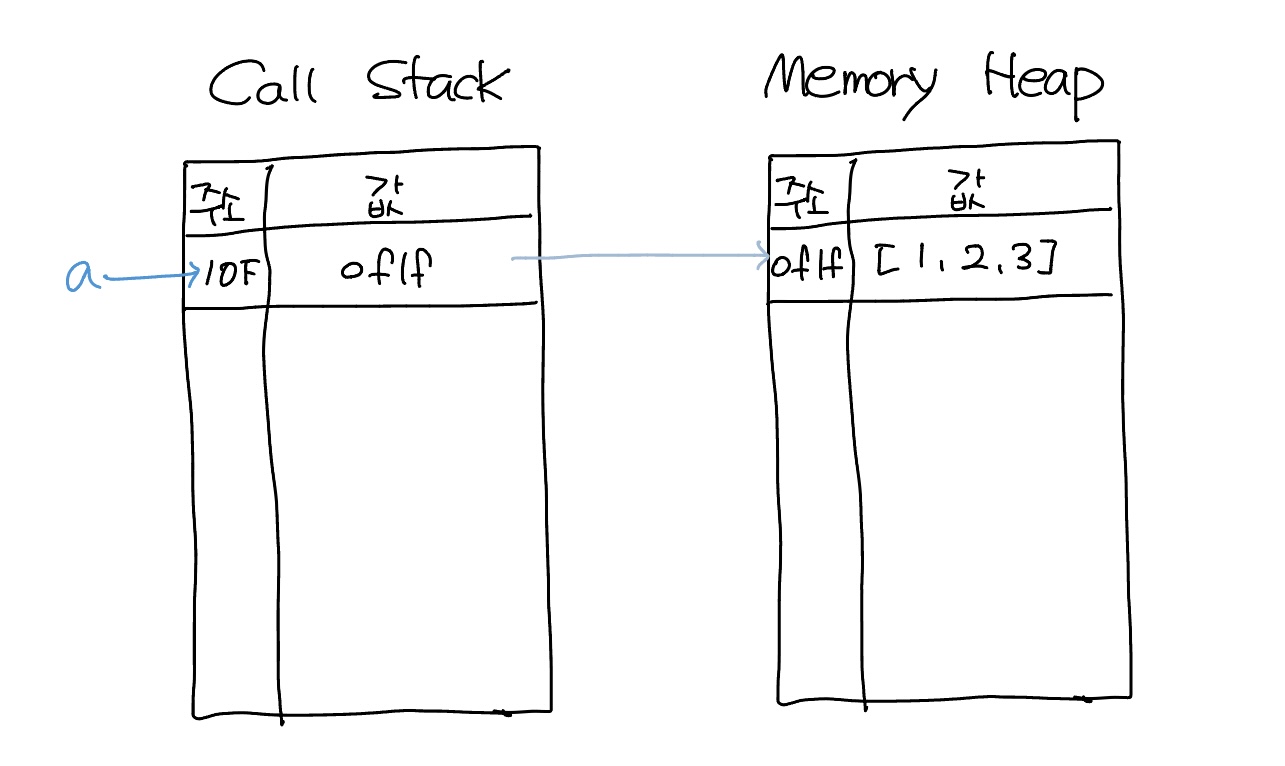 Call Stack
주소 값
a 10F of1f
Memory Heap
주소 값
of1f [1, 2, 3]